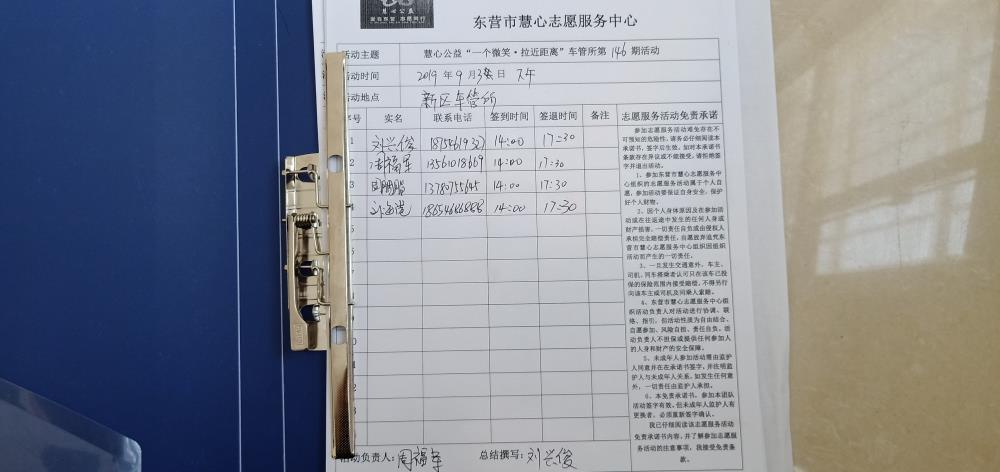 慧心公益
东营市慧心志愿服务中心
活动主题 慧心公益“一个微笑·拉近距离”车管所第146期活动
活动时间 2019年9月3日 下午
活动地点 新区车管所
序号 实名 联系电话 签到时间 签退时间 备注 志愿服务活动免责承诺
1 刘兴俊 14:00 17:30
2 周福军 13561018669 14:00 17:30
3 13780755645 14:00 17:30
4 18654646888 14:00 17:30
参加志愿服务活动难免存在不
可预知的危险性,请务必仔细阅读本
承诺书,签字后生效。如对本承诺书
条款存在异议或不能接受,请拒绝签
字并退出活动。
1、参加东营市慧心志愿服务中
心组织的志愿服务活动属于个人自
愿,参加活动要保证自身安全,保护
好个人财物。
2、因个人身体原因及在参加活
动或在往返途中发生的任何人身或
财产损害,一切责任自负或由侵权人
承担完全赔偿责任,自愿放弃追究东
营市慧心志愿服务中心组织因组织
活动而产生的一切责任。
3、一旦发生交通意外,车主、
司机、同车搭乘者认可只在该车已投
保的保险范围内接受赔偿,不得另行
向该车主或司机及同乘人索赔。
4、东营市慧心志愿服务中心组
织活动负责人对活动进行协调、联
络、指引,但活动性质为自由结合、
自愿参加、风险自担、责任自负。活
动负责人不担保或提供任何参加人
的人身和财产的安全保障。
5、未成年人参加活动需由监护
人同意并在在承诺书签字,并注明监
护人与未成年人关系。如发生任何意
外,一切责任由监护人承担。
6、本免责承诺书,参加本团队
活动签字有效,但未成年人监护人有
更换者,必须重新签字确认。
我已仔细阅读该志愿服务活动
免责承诺书内容,并了解参加志愿服
务活动的注意事项,我接受免责条
款。
活动负责人:周福军 总结撰写:刘兴俊